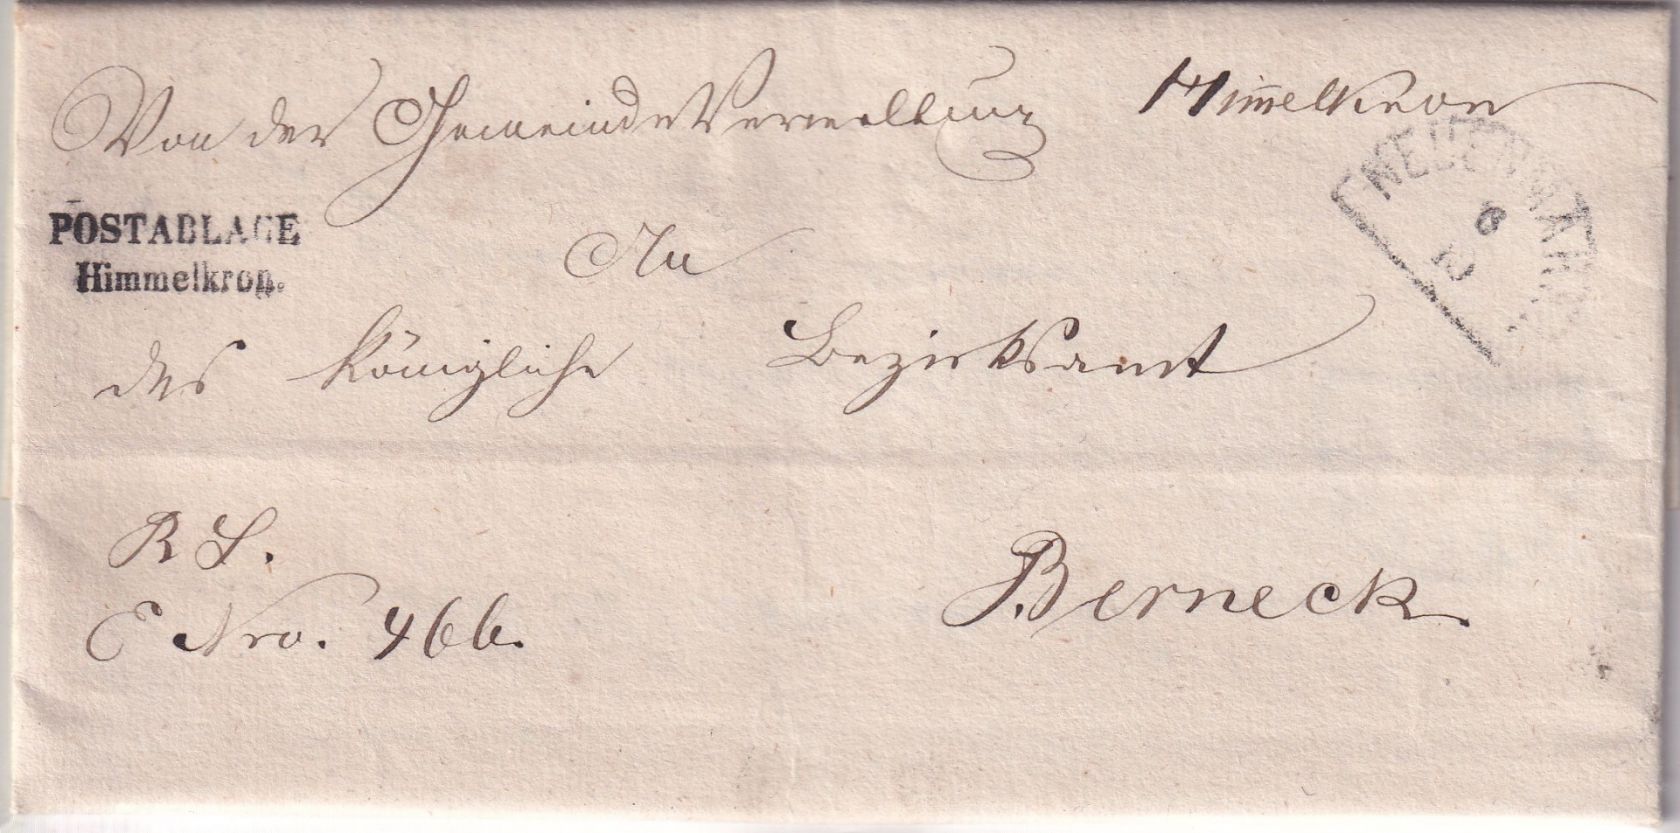 Von der Gemeinde Verwaltung Himmelkron
POSTABLAGE
Himmelkron.
NEUENMARKT
6
10
An
das Königliche Bezirksamt
R S.
E Nro. 466.
Berneck.